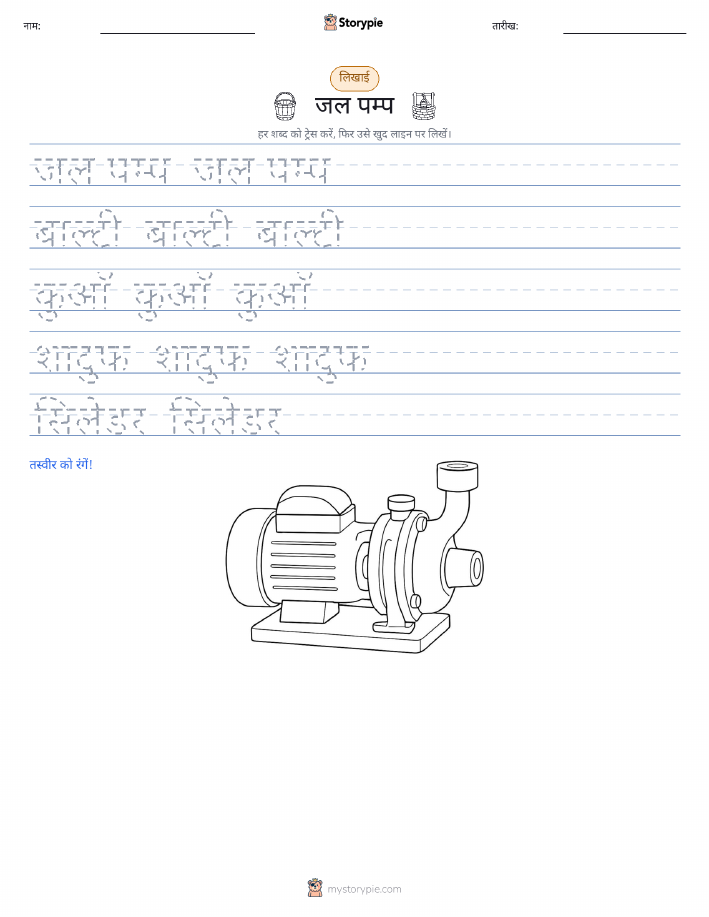 नाम:
Storypie
तारीख:
लिखाई
जल पम्प
हर शब्द को ट्रेस करें, फिर उसे खुद लाइन पर लिखें।
जल पम्प जल पम्प
बाल्टी बाल्टी बाल्टी
कुऑ कुऑ कुऑ
शादुफ शादुफ शादुफ
सिलेंडर सिलेंडर
तस्वीर को रंगें!
mystorypie.com